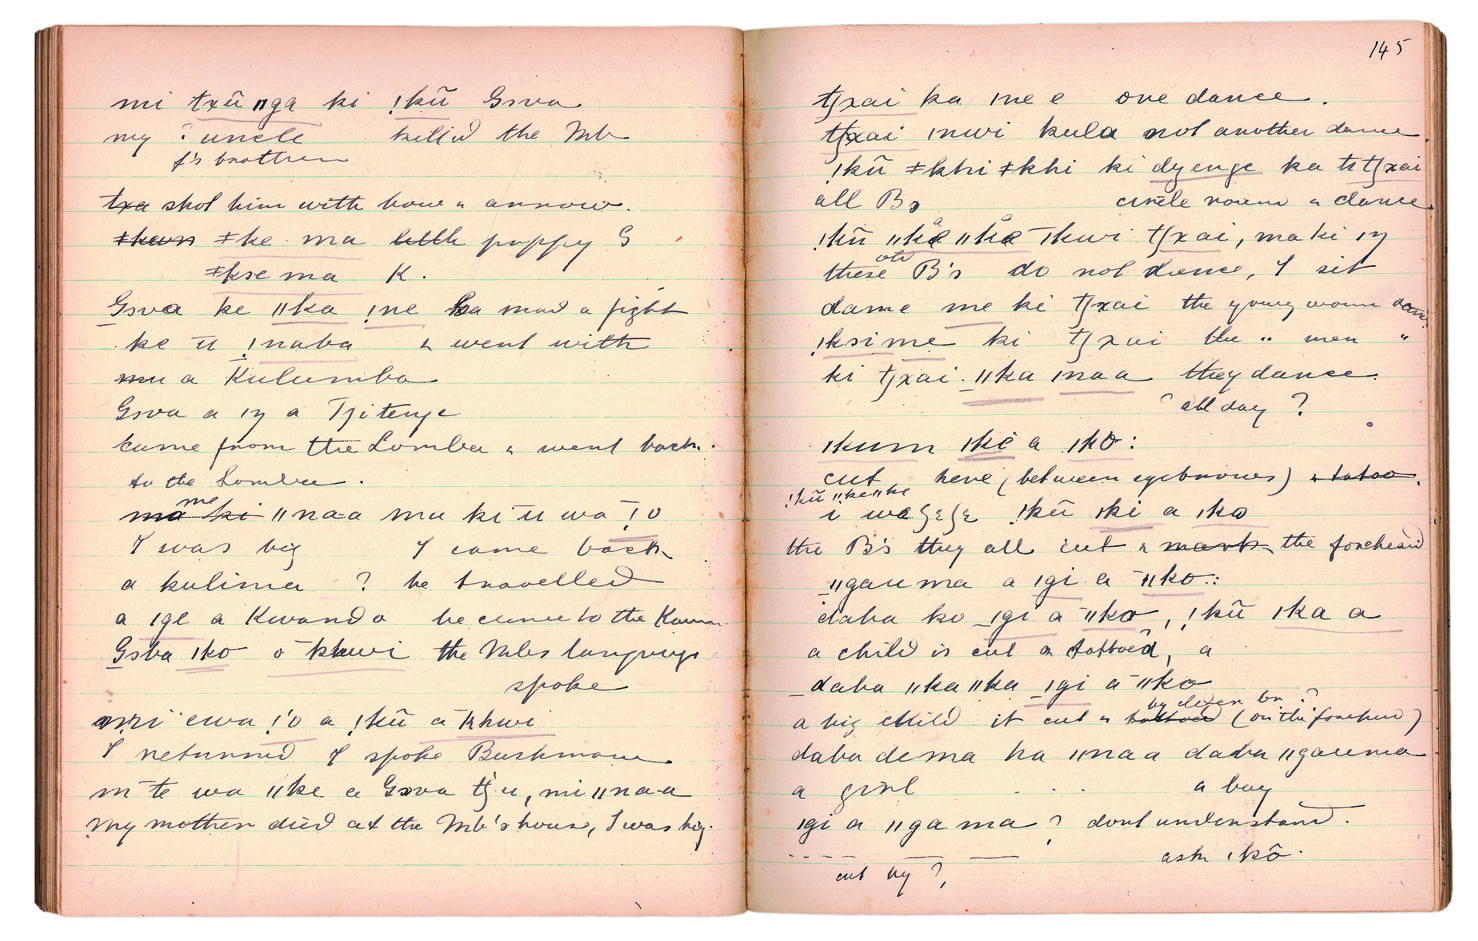 mi txũ ǁga ki !kũ Gova
my ? uncle killed the Mb
f's brother
txa shot him with bow & arrow.
ǂke ma little puppy G
ǂkse ma K.
Gova ke ǁka !ne ha mad a fight
ke ū !naba & went with
mu a Kulumba
Gova a ıɲ a Tjitenge
came from the Lomba & went back
to the Lomba.
me
ma ki ǁna-a mu ki ū wa !o
I was big I came back
a kulima ? he travelled
a ıge a Kwando he came to the
Goba ıko o khwi the Mbs language
spoke
ewa !o a !kũ a khwi
I returned I spoke Bushman
m te wa ǁke a Gova tʃu, mi ǁna-a
My mother died at the Mb's house, I was big.
145
tʃxai ka ıne e one dance.
tʃxai ınwi kula not another dance
!kũ ǂkhi ǂkhi ki dyenge ka ti tʃxai
all Bs circle round a dance
!kũ ǁka ǁka ıkwi tʃxai, ma ki ıɲ
these B's do not dance, I sit
dame me ki tʃxai the young women dance
!ksi me ki tʃxai the " men "
ki tʃxai. ǁka ınaa they dance.
? all day ?
ıkum ıke a ıko:
cut here (between eyebrows) & tatoo.
!kũ ǁke ǁke
i !kũ ıki a ıko
the B's they all cut & mark the forehead
ǁgauma a ıgi a ǁko:
daba ko ıgi a ǁko, !kũ ıka a
a child is cut & tattoed, a
daba ǁka ǁka ıgi a ǁko
a big child it cut & tattoed (on the forehead)
daba dema ha ǁnaa daba ǁgauma
a girl a boy
ıgi a ǁgama ? dont understand.
cut by ? ask ıkõ.